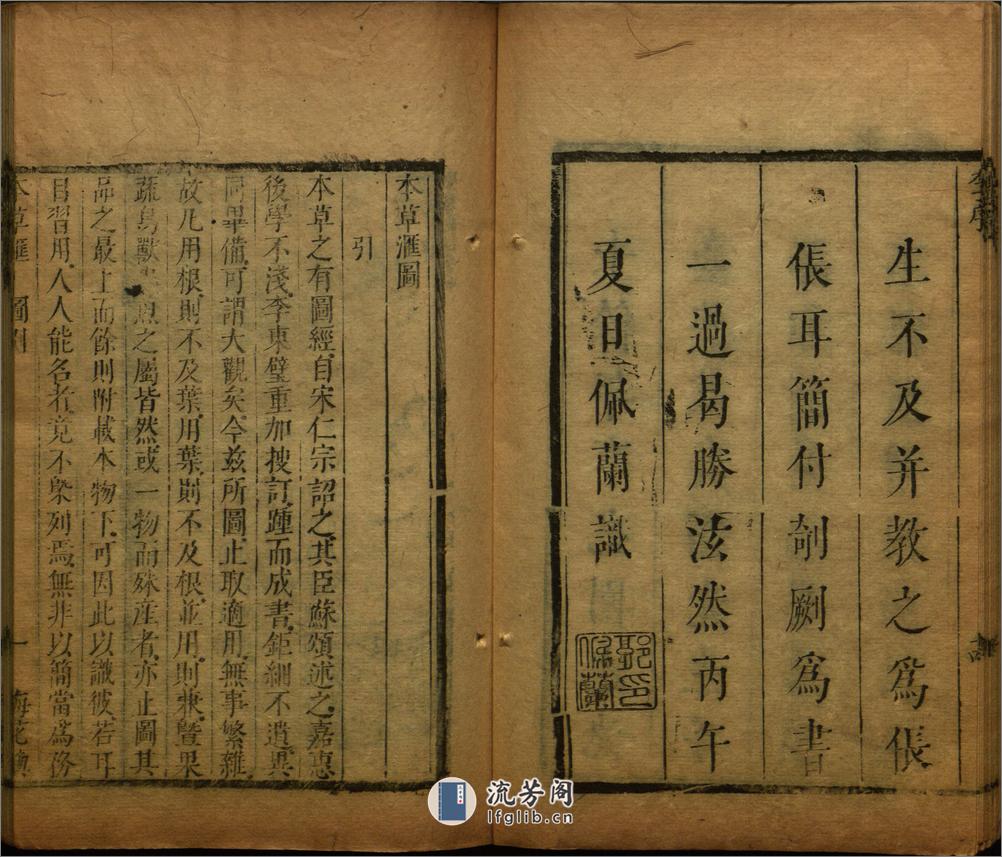 生不及并教之爲倀
倀耳簡付剞劂爲書
一過曷勝泫然丙午
夏日佩蘭識
郭佩蘭印
本草滙圖
引
本草之有圖經自宋仁宗詔之其臣蘇頌述之嘉惠
後學不淺李東璧重加搜訂踵而成書鉅細不遺異
同畢備可謂大觀矣今兹所圖止取適用無事繁雜
故凡用根則不及葉用葉則不及根並用則兼曁果
蔬鳥獸虫魚之屬皆然或一物而殊産者亦止圖其
品之最上而餘則附載本物下可因此以識彼若耳
目習用人人能名者竟不槩列焉無非以簡當爲務
本草滙 圖引 一 梅花嶼
流芳阁
lfglib.cn